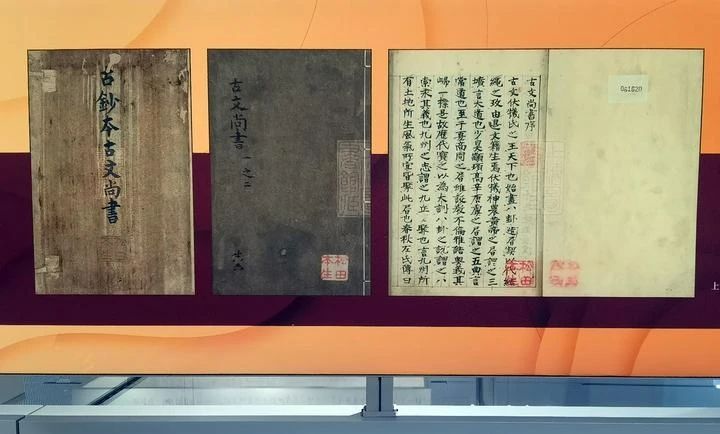 古鈔本古文尚書
古文尚書 一之二
共六
松田
本生
古文尚書序
古文伏犧氏之王天下也始畫八卦造書契以代結
繩之政由是文籍生焉伏犧神農黄帝之書謂之三
墳言大道也少昊顓頊高辛唐虞之書謂之五典言
常道也至于夏商周之書雖設教不倫雅誥奥義其
歸一揆是故歷代寶之以為大訓八卦之説謂之八
索求其義也九州之志謂之九丘丘聚也言九州所
有土地所生風氣所宜皆聚此書也春秋左氏傳曰
松田
本生
上